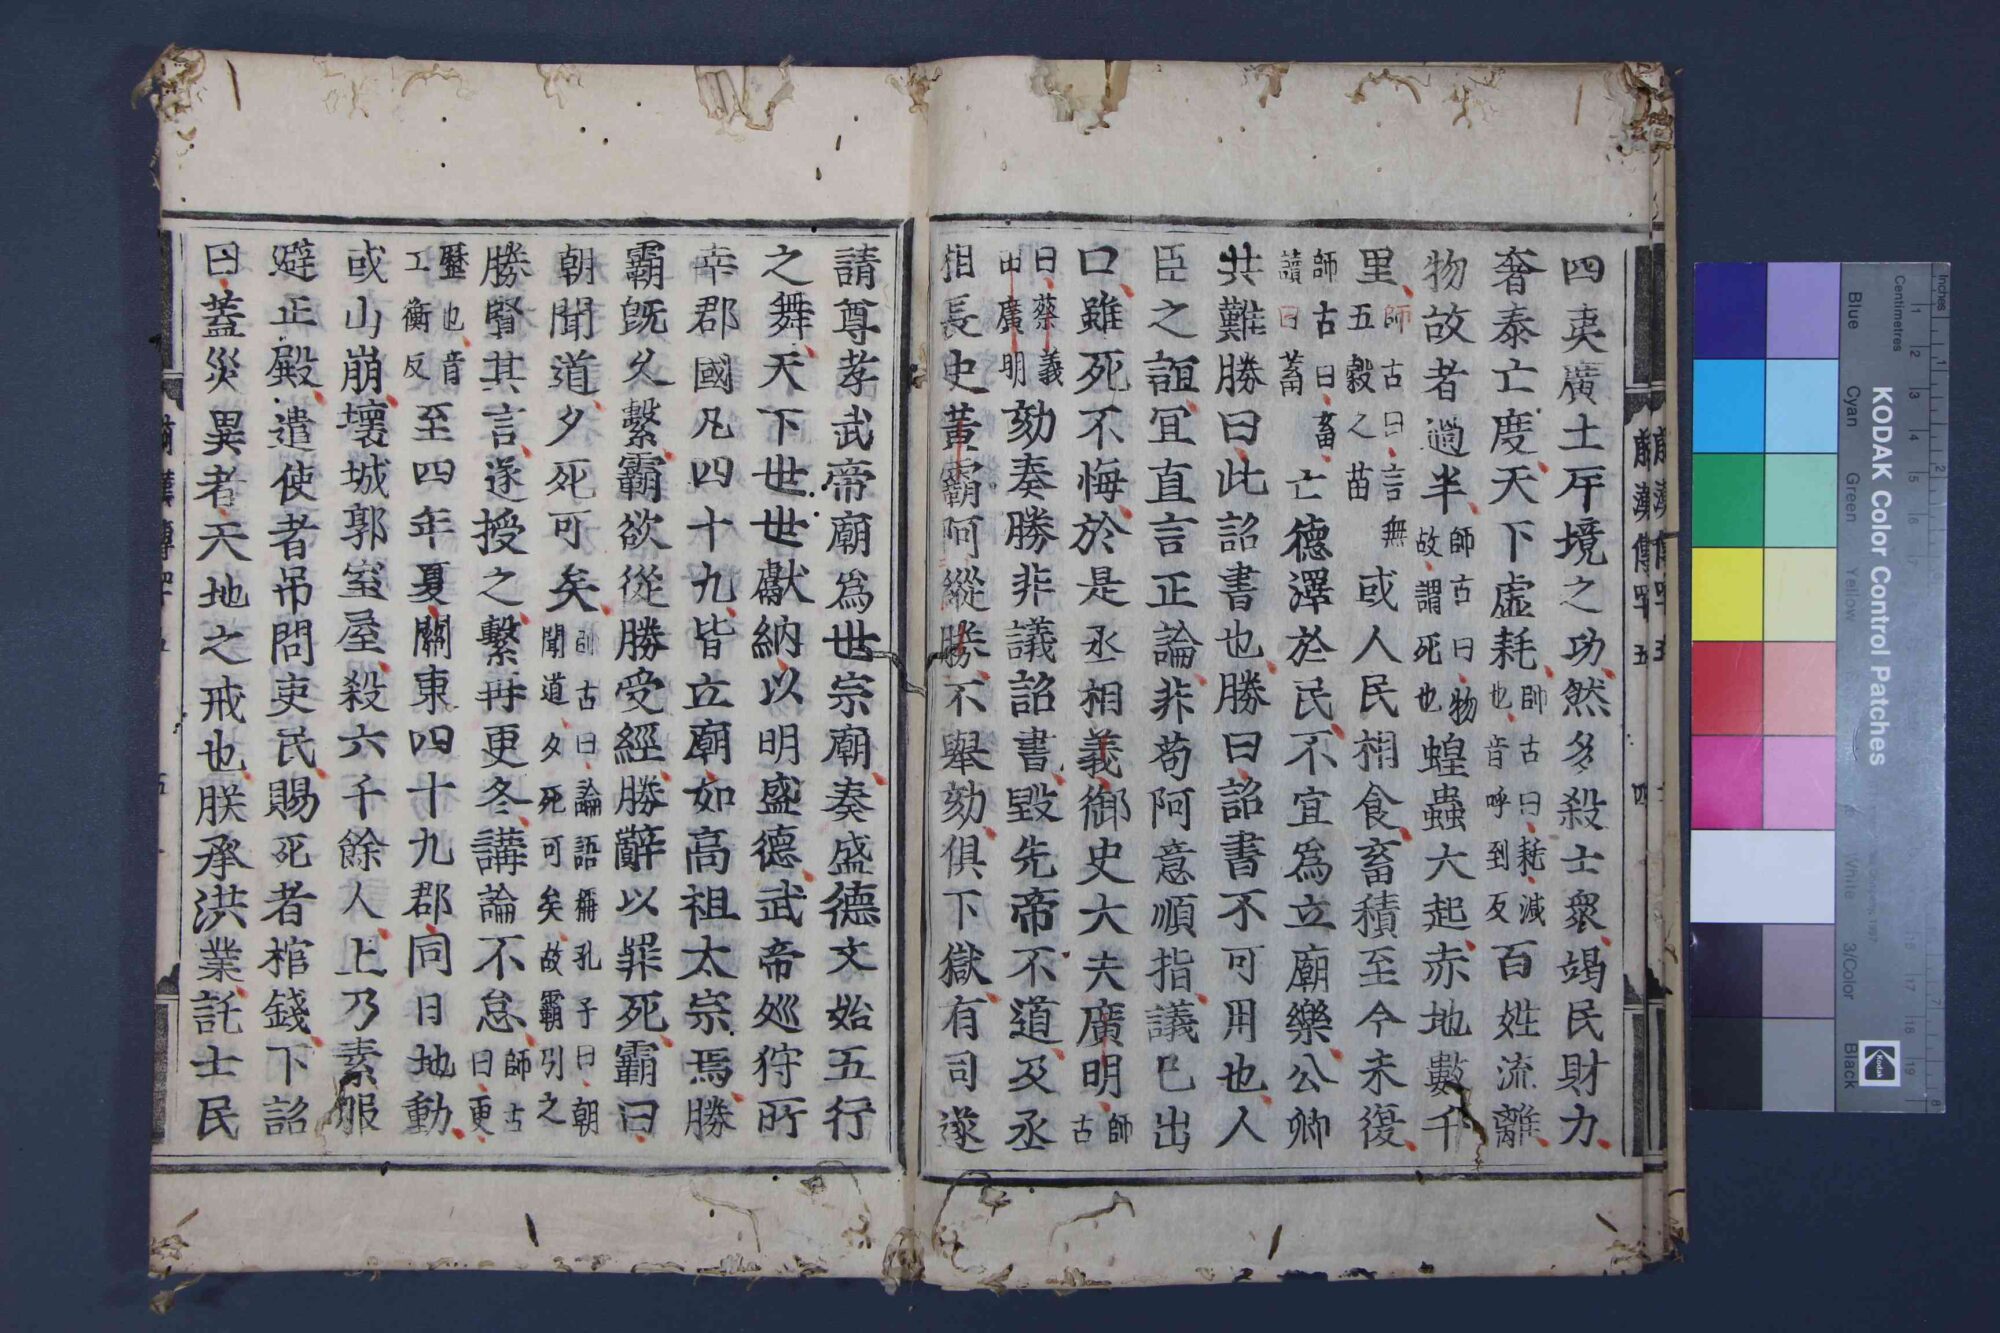 四夷廣土斥境之功然多殺士衆竭民財力
奢泰亡度天下虛耗師古曰耗減也音呼到反百姓流離
物故者過半師古曰物故謂死也蝗蟲大起赤地數千
里師古曰言無五穀之苗或人民相食畜積至今未復
師古曰畜讀曰蓄亡德澤於民不宜爲立廟樂公卿
共難勝曰此詔書也勝曰詔書不可用也人
臣之誼宜直言正論非苟阿意順指議已出
口雖死不悔於是丞相義御史大夫廣明師古
曰蔡義田廣明劾奏勝非議詔書毀先帝不道及丞
相長史黃霸阿縱勝不舉劾俱下獄有司遂
請尊孝武帝廟爲世宗廟奏盛德文始五行
之舞天下世世獻納以明盛德武帝巡狩所
幸郡國凡四十九皆立廟如高祖太宗焉勝
霸旣久繫霸欲從勝受經勝辭以罪死霸曰
朝聞道夕死可矣師古曰論語稱孔子曰朝聞道夕死可矣故霸引之
勝賢其言遂授之繫再更冬講論不怠師古曰更
歷也音工衡反至四年夏關東四十九郡同日地動
或山崩壞城郭室屋殺六千餘人上乃素服
避正殿遣使者吊問吏民賜死者棺錢下詔
曰蓋災異者天地之戒也朕承洪業託士民
前漢傳四十五
四
KODAK Color Control Patches
Blue
Cyan
Green
Yellow
3/Color
Black
Centimetres
Inches
Kodak